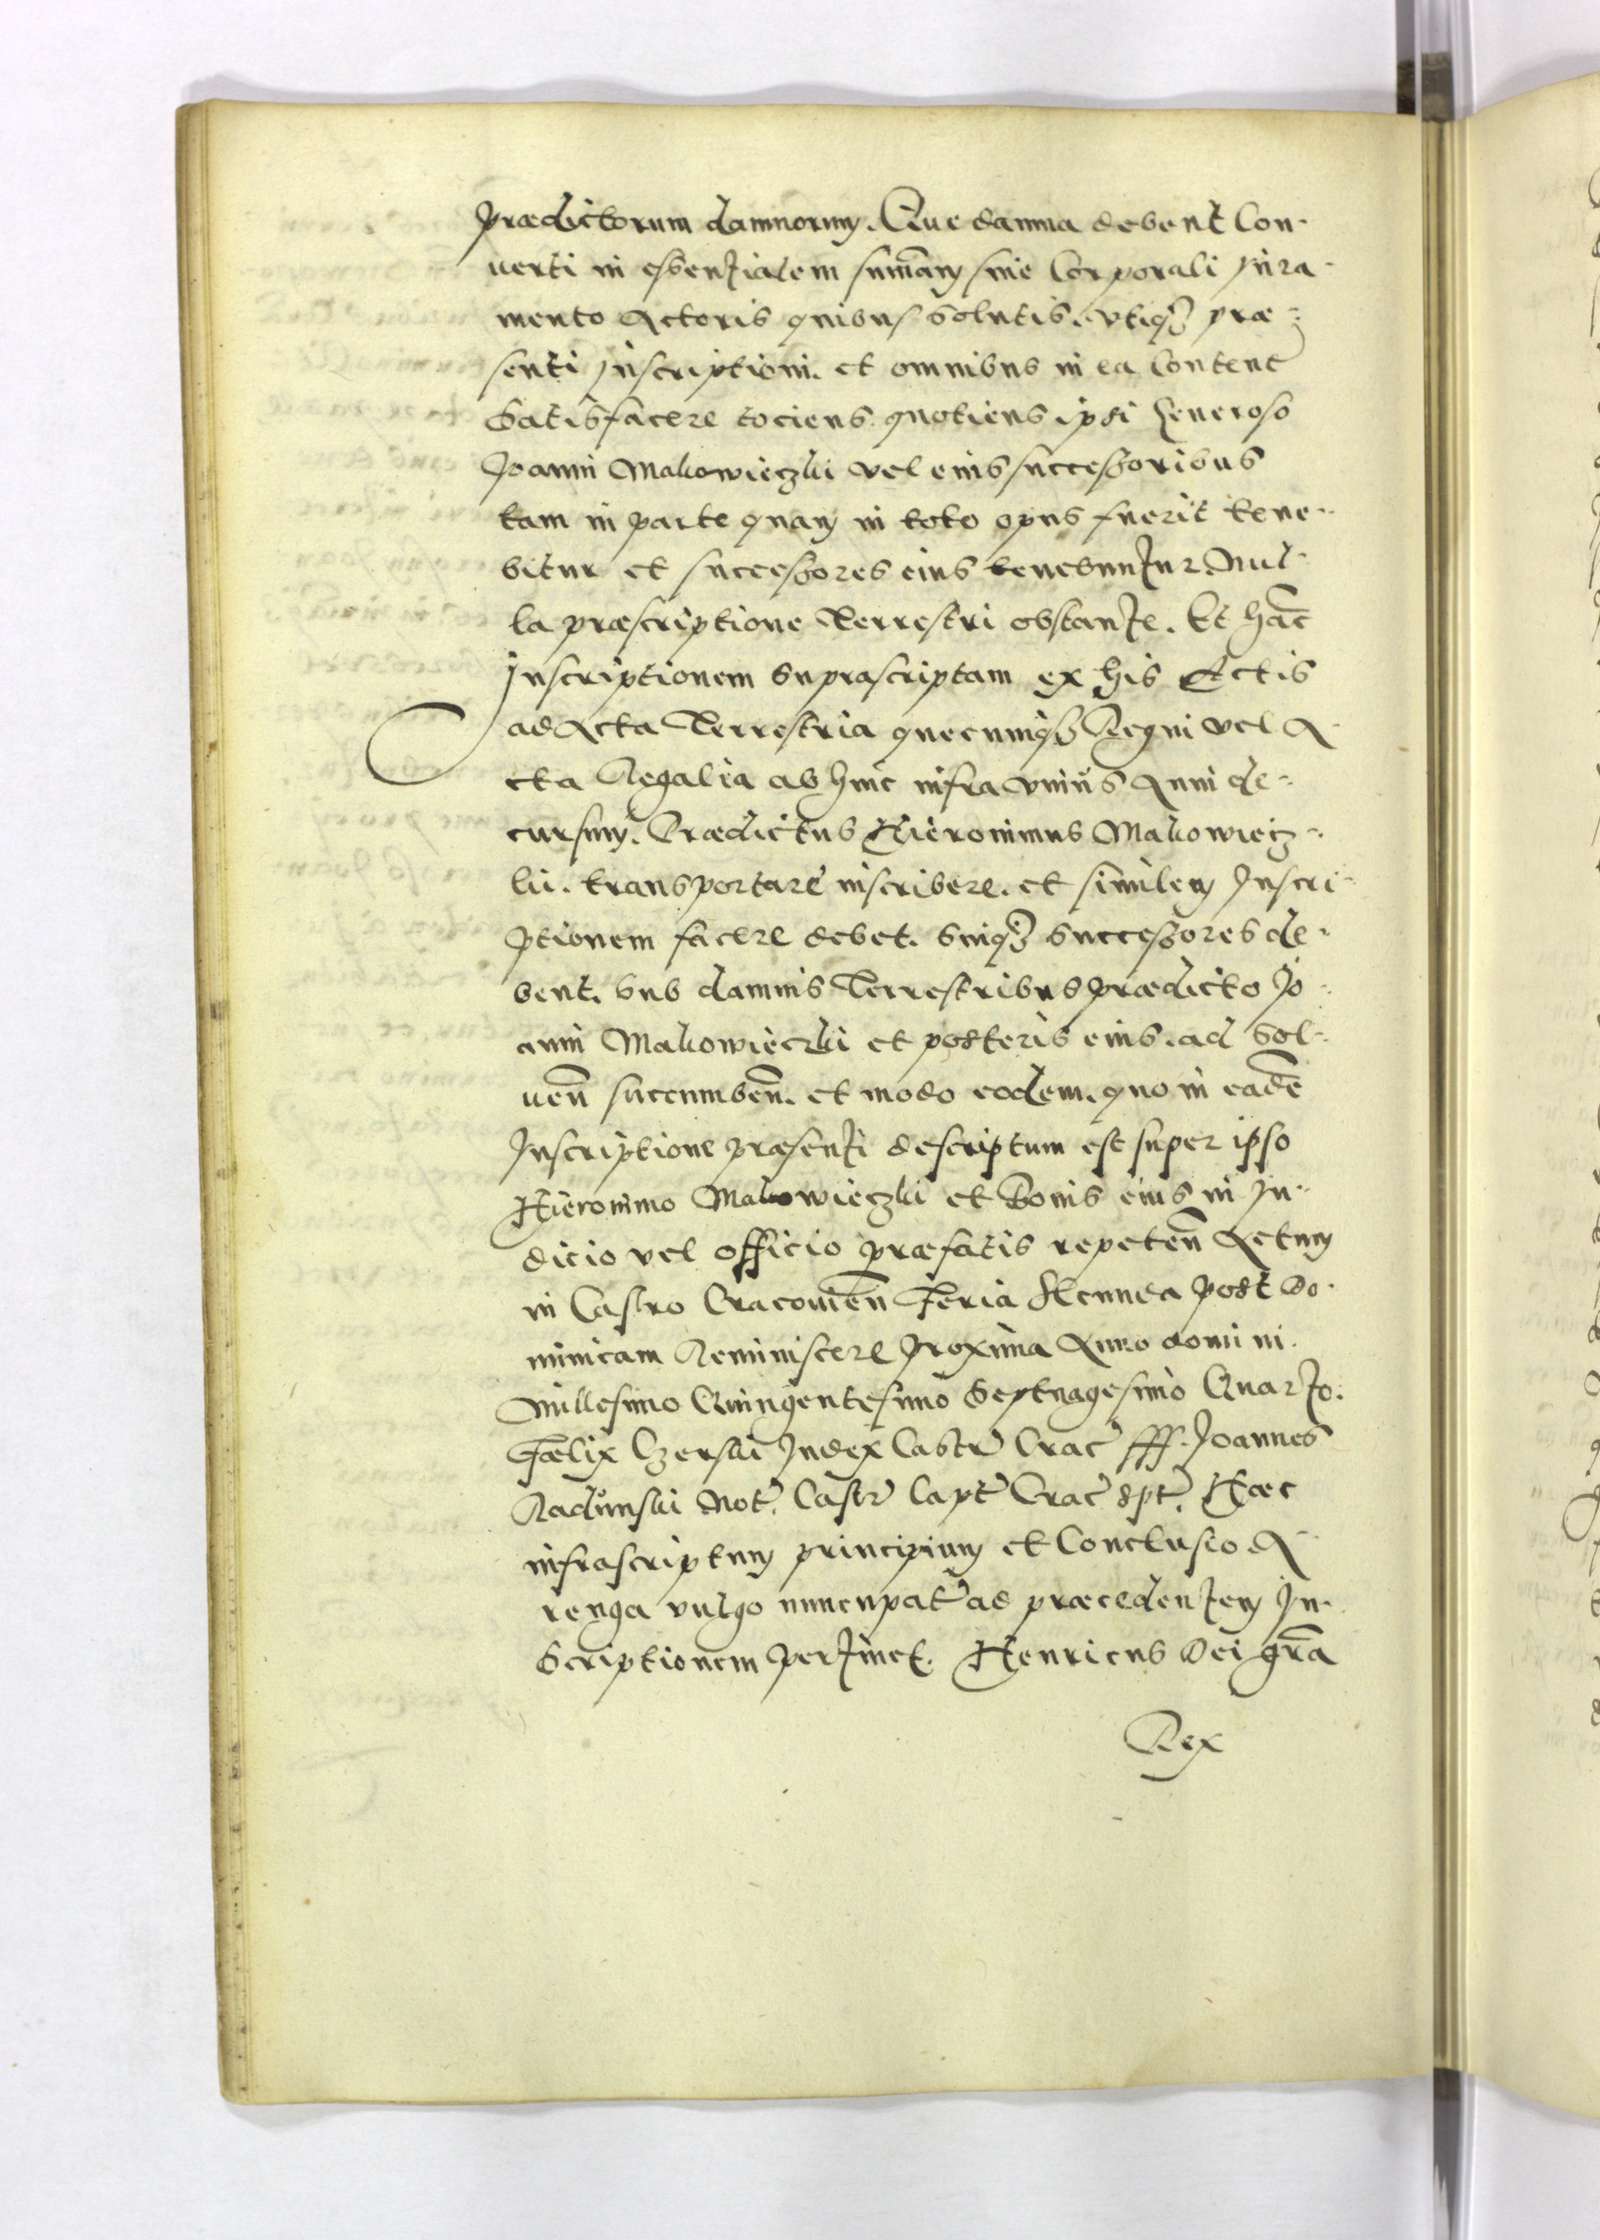 prædictorum damnorum. Que damna debent Con-
uerti in essentialem summam sine Corporali Jura-
mento Actoris quibus solutis. utiq3 præ-
senti Inscriptioni. et omnibus in ea Content
satisfacere tociens quotiens ipsi Generoso
Joanni Makowieczki vel eius successoribus
tam in parte quam in toto opus fuerit tene-
bitur et successores eius tenebuntur. Nul-
la præscriptione Terrestri obstante. Et hanc
Inscriptionem suprascriptam ex his Actis
ad Acta Terrestria quecumq3 Regni vel A-
cta Regalia ab hinc infra unius Anni de-
cursum. Prædictus Hieronimus Makowiecz-
ki. transportare inscribere. et similem Inscri-
ptionem facere debet. suiq3 successores de-
bent. sub damnis Terrestribus prædicto Jo-
anni Makowieczki et posteris eius. ad sol-
uen̄ succumben̄. et modo eodem. quo in eadē
Inscriptione præsenti descriptum est super ipso
Hieronimo Makowieczki et Bonis eius in Ju-
dicio vel officio præfatis repeten̄ Actum
in Castro Cracouien̄ Feria Secunda post Do-
minicam Reminiscere proxima Anno domini
Millesimo Quingentesimo Septuagesimo Quarto.
Fælix Czerski Judex Castr̄ Crac̄ sss. Joannes
Radunski Not̄. Castr̄ Capt̄ Crac̄ spt̄. Hæc
infrascriptum principium et Conclusio A-
renga vulgo nuncupat̄ ad præcedentem In-
scriptionem pertinet. Henricus Dei grā
Rex